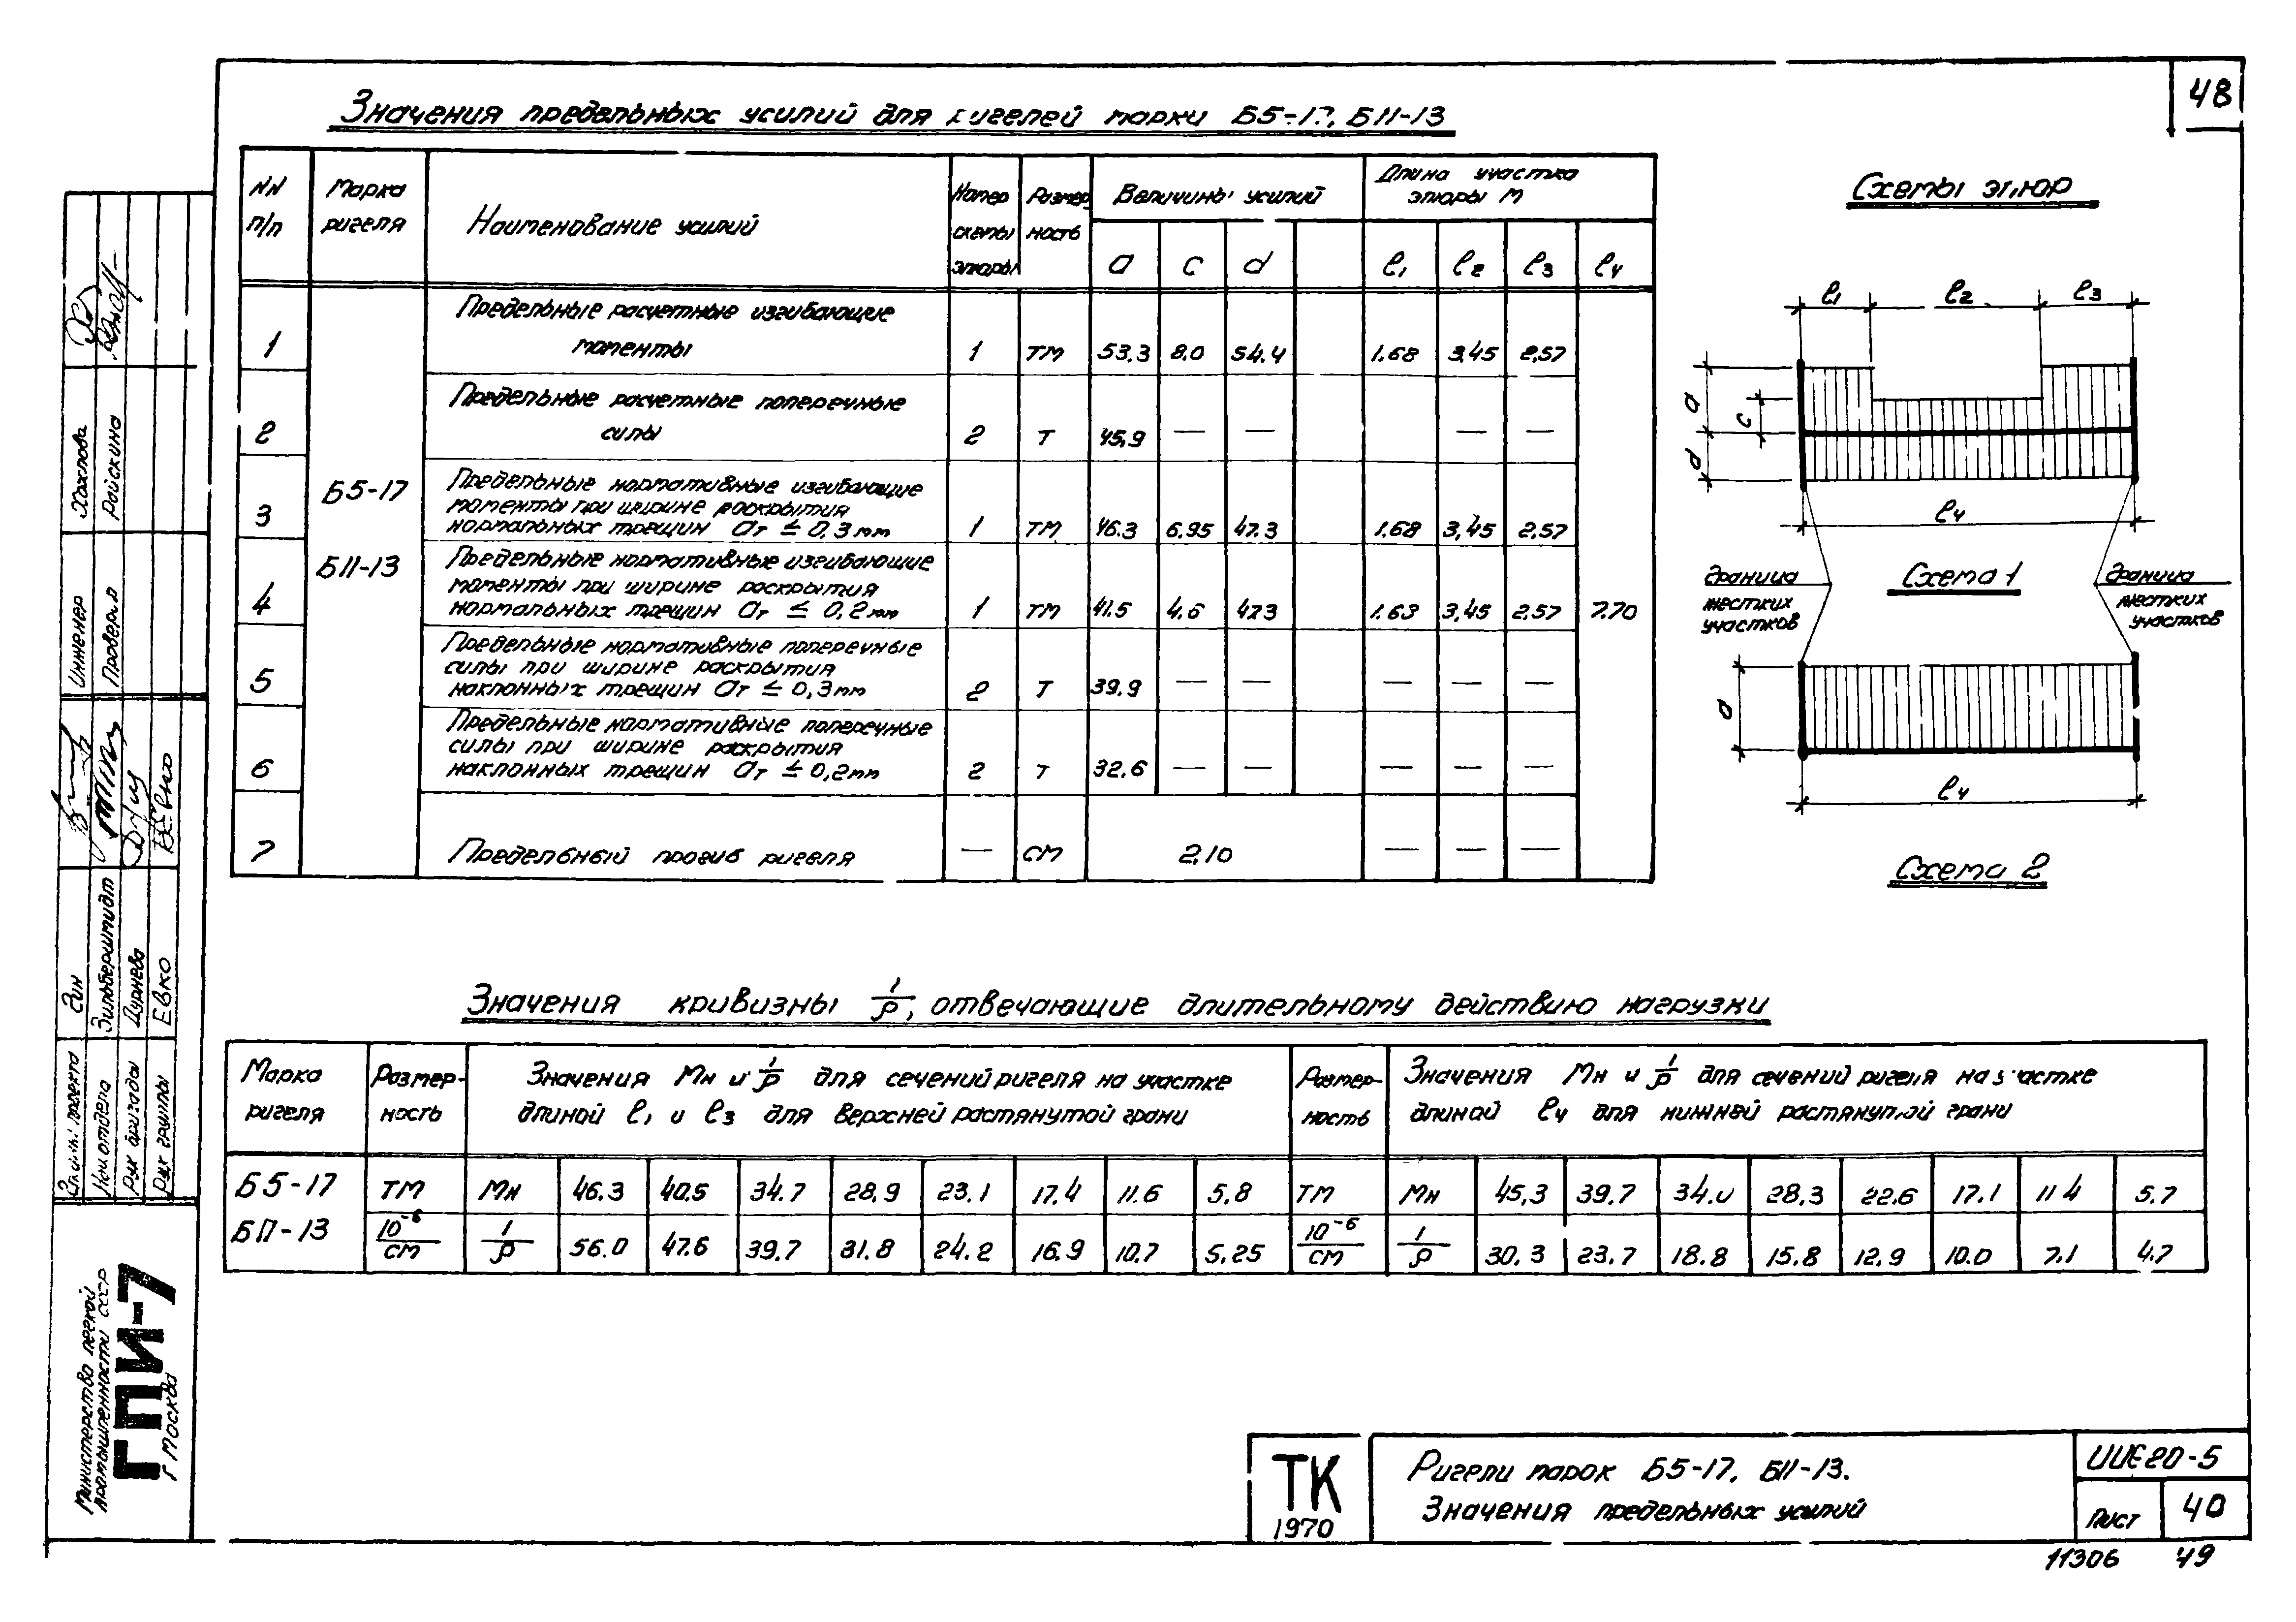 48
Значения предельных усилий для ригелей марки Б5-17, БII-13
NN п/п
Марка ригеля
Наименование усилий
Номер схемы эпюры
Размерность
Величины усилий
Длина участка эпюры м
a c d l1 l2 l3 l4
Б5-17
БII-13
1 Предельные расчетные изгибающие
моменты 1 тм 53.3 8.0 54.4 1.68 3.45 2.57
2 Предельные расчетные поперечные
силы 2 т 45,9 — — — —
3 Предельные нормативные изгибающие
моменты при ширине раскрытия
нормальных трещин aт ≤ 0,3мм 1 тм 46.3 6.95 47.3 1.68 3,45 2,57
4 Предельные нормативные изгибающие
моменты при ширине раскрытия
нормальных трещин aт ≤ 0,2мм 1 тм 41.5 4.6 473 1.63 3,45 2.57 7.70
5 Предельные нормативные поперечные
силы при ширине раскрытия
наклонных трещин aт ≤ 0,3мм 2 т 39.9 — — — — —
6 Предельные нормативные поперечные
силы при ширине раскрытия
наклонных трещин aт ≤ 0,2мм 2 т 32.6 — — — — —
7 Предельный прогиб ригеля — см 2,10 — — —
Схемы эпюр
l1 l2 l3
a
c
d
l4
граница
жестких
участков
Схема 1
граница
жестких
участков
a
l4
Схема 2
Значения кривизны 1/ρ, отвечающие длительному действию нагрузки
Марка ригеля
Размерность
Значения Мн и 1/ρ для сечений ригеля на участке
длиной l1 и l3 для верхней растянутой грани
Размерность
Значения Мн и 1/ρ для сечений ригеля на участке
длиной l4 для нижней растянутой грани
Б5-17 тм Мн 46.3 40.5 34.7 28,9 23,1 17.4 11.6 5,8 тм Мн 45,3 39.7 34.0 28,3 22.6 17.1 11 4 5.7
БII-13 10⁻⁶/см 1/ρ 56.0 47.6 39.7 31.8 24.2 16.9 10.7 5,25 10⁻⁶/см 1/ρ 30.3 23.7 18.8 15.8 12.9 10.0 7.1 4.7
Инженер Хохлова
Проверил Райскина
Гл. инж. проекта Гин
Нач отдела Зильбершмидт
Рук бригады Дурнева
Рук группы Евко
Министерство легкой
промышленности СССР
ГПИ-7
г Москва
ТК
1970
Ригели марок Б5-17, БII-13.
Значения предельных усилий
ИИЕ20-5
Лист 40
11306 49